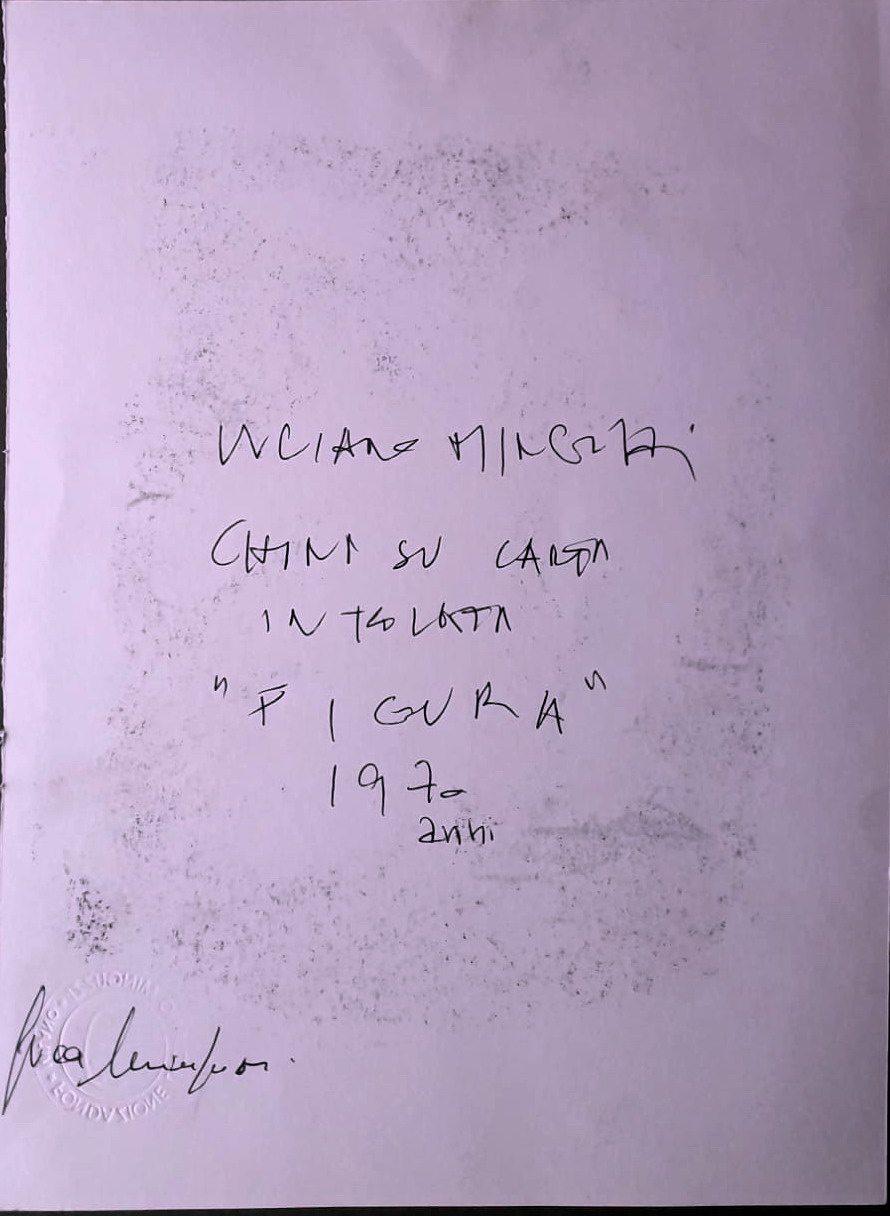 LUCIANO MINGUZZI
CHINA SU CARTA
INTELATA
"FIGURA"
1970
anni
FONDAZIONE